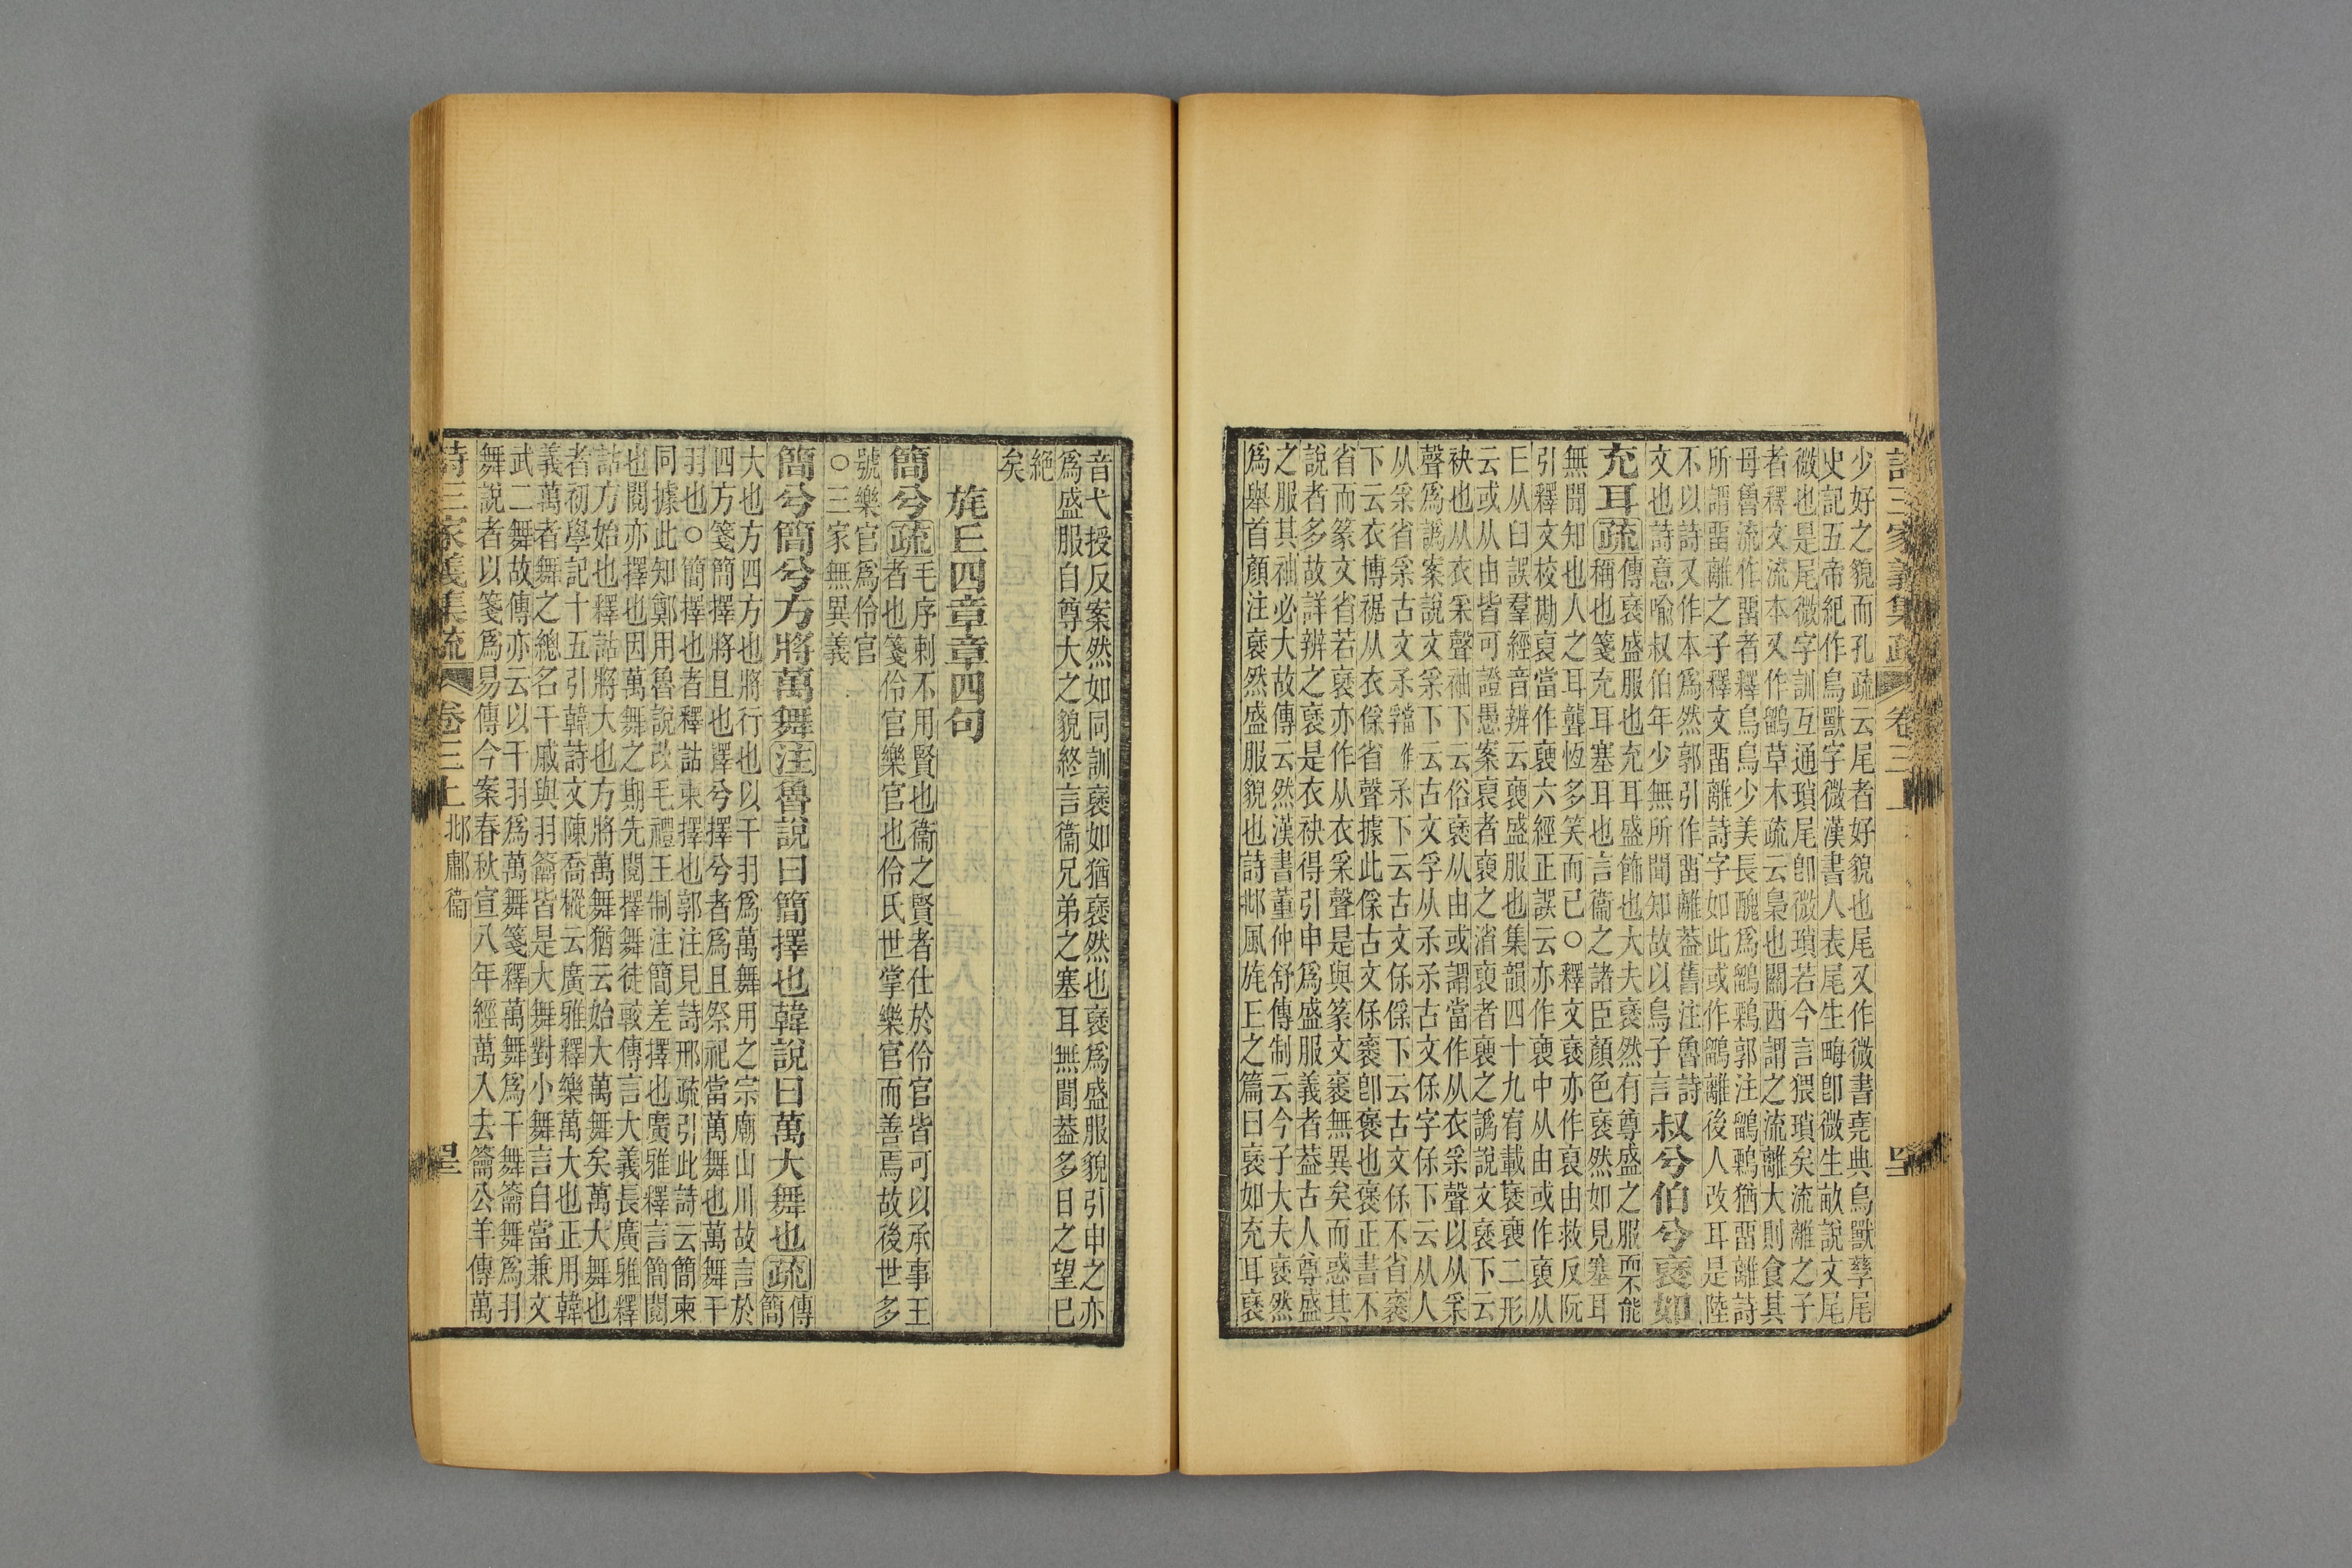 詩三家義集疏 卷三上
少好之貌而孔疏云尾者好貌也尾又作微書堯典鳥獸孳尾
史記五帝紀作鳥獸字微漢書人表尾生畮卽微生畝說文尾
微也是尾微字訓互通瑣尾卽微瑣若今言猥瑣矣流離之子
者釋文流本又作鶹草木疏云梟也關西謂之流離大則食其
母魯流作畱者釋鳥鳥少美長醜爲鶹鷅郭注鶹鷅猶畱離詩
所謂畱離之子釋文畱離詩字如此或作鶹離後人改耳是陸
不以詩又作本爲然郭引作畱離蓋舊注魯詩
文也詩意喻叔伯年少無所聞知故以鳥子言
叔兮伯兮褎如
充耳疏
傳褎盛服也充耳盛飾也大夫褎然有尊盛之服而不能
稱也箋充耳塞耳也言衞之諸臣顏色褎然如見塞耳
無聞知也人之耳聾恆多笑而已○釋文褎亦作裒由救反阮
引釋文校勘裒當作褏六經正誤云亦作褏中从由或作褏从
从臼誤羣經音辨云褏盛服也集韻四十九宥載褎褏二形
云或从由皆可證愚案裒者褏之消褏者褏之譌說文褎下云
袂也从衣采聲袖下云俗褎从由或謂當作从衣采聲以从采
聲爲譌案說文采下云古文孚从𤓽𤓽古文保字保下云从人
从采省采古文𤓽下云古文保保下云古文保不省褎
下云衣博裾从衣保省聲據此保古文保褎卽褒也褒正書不
省而篆文省若褎亦作从衣采聲是與篆文褎無異矣而惑其
說者多故詳辨之褎是衣袂得引申爲盛服義者蓋古人尊盛
之服其袖必大故傳云然漢書董仲舒傳制云今子大夫褎然
爲舉首顏注褎然盛服貌也詩邶風旄丘之篇曰褎如充耳褎
音弋授反案然如同訓褎如猶褎然也褎爲盛服貌引申之亦
爲盛服自尊大之貌終言衞兄弟之塞耳無聞蓋多日之望已
絕
矣
旄丘四章章四句
簡兮疏
毛序刺不用賢也衞之賢者仕於伶官皆可以承事王
者也箋伶官樂官也伶氏世掌樂官而善焉故後世多
號樂官爲伶官
○三家無異義
簡兮簡兮方將萬舞注魯說曰簡擇也韓說曰萬大舞也疏
傳
簡
大也方四方也將行也以干羽爲萬舞用之宗廟山川故言於
四方箋簡擇將且也擇兮擇兮者爲且祭祀當萬舞也萬舞干
羽也○簡擇也者釋詁柬擇也郭注見詩邢疏引此詩云簡柬
同據此知鄭用魯說改毛禮王制注簡差擇也廣雅釋言簡閱
也閱亦擇也因萬舞之期先閱擇舞徒戟傳言大義長廣雅釋
詁方始也釋詁將大也方將萬舞猶云始大萬舞矣萬大舞也
者初學記十五引韓詩文陳喬樅云廣雅釋樂萬大也正用韓
義萬者舞之總名干戚與羽籥皆是大舞對小舞言自當兼文
武二舞故傳亦云以干羽爲萬舞箋釋萬舞爲干舞籥舞爲羽
舞說者以箋爲易傳今案春秋宣八年經萬入去籥公羊傳萬
詩三家義集疏 卷三上 邶鄘衞